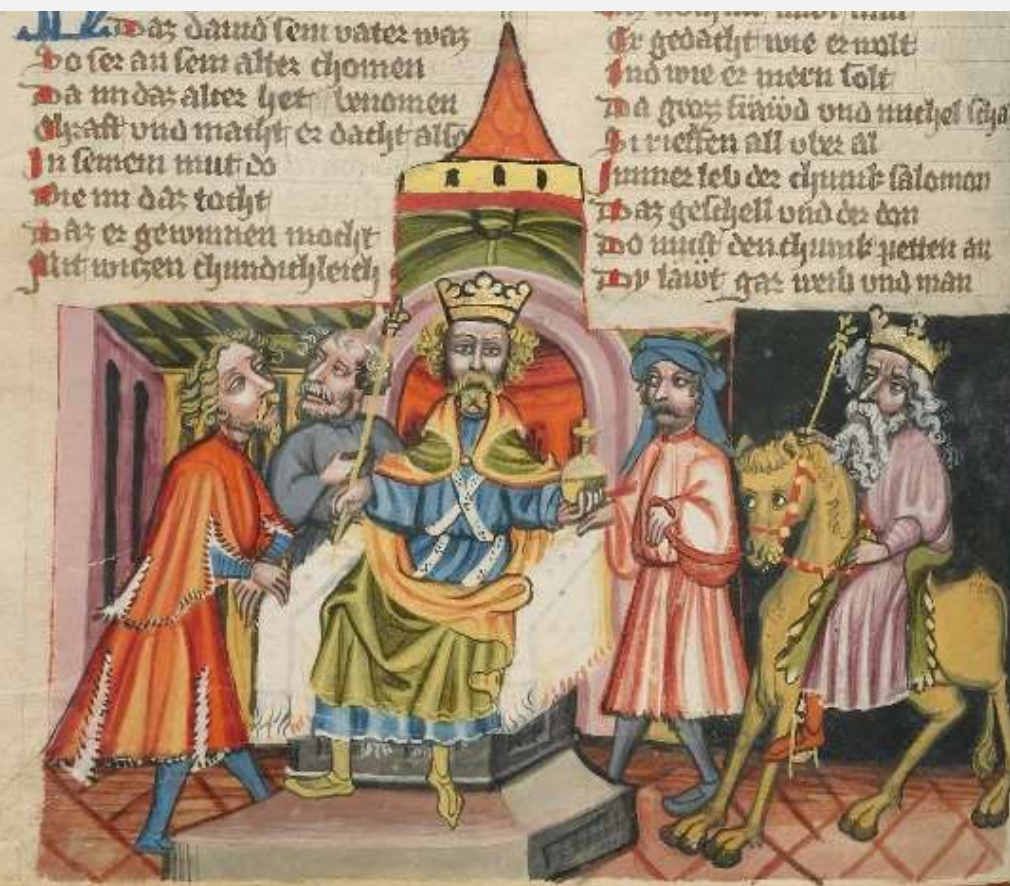 Daz dauid sein vater waz
Do ser an sein alter chomen
Da im daz alter het benomen
Chraft vnd macht er dacht also
In seinem mut do
Wie im daz tocht
Daz er gewinnen mocht
Mit wiczen chundichleich
Er gedacht wie er wolt
Vnd wie er mern solt
Da groz fräwd vnd michel scha
Si rieffen all vber al
Immer leb der chunik salomon
Daz geschell vnd der don
Do must den chunik petten an
Dy läwt gar weib vnd man